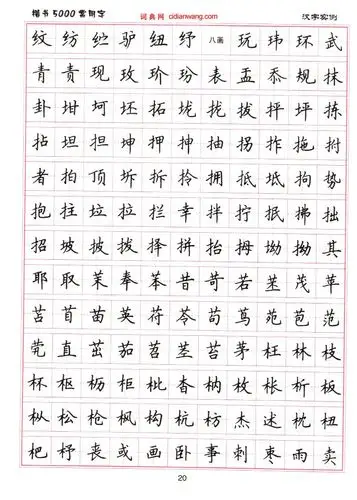 楷书5000常用字 词典网 cidianwang.com 汉字实例
纹 纺 纻 驴 纽 纾 八画 玩 玮 环 武
青 责 现 玫 玠 玢 表 盂 忝 规 抹
卦 坩 坷 坯 拓 垅 拢 拔 抨 坪 拣
拈 坦 担 坤 押 抻 抽 拐 拃 拖 拊
者 拍 顶 坼 拆 拎 拥 抵 坻 拘 势
抱 拄 垃 拉 拦 幸 拌 拧 抿 拂 拙
招 坡 披 拨 择 拚 抬 拇 坳 拗 其
耶 取 茉 奉 苯 昔 苛 若 茂 革
苫 苜 苗 英 苻 苓 苟 茑 苑 苞 范
茕 直 茁 茄 苕 茎 苔 茅 枉 林 枝
杯 枢 枥 柜 枇 杳 枘 枚 枨 析 板
枞 松 枪 枫 构 杭 枋 杰 述 枕 杻
杷 杼 丧 或 画 卧 事 刺 枣 雨 卖
20